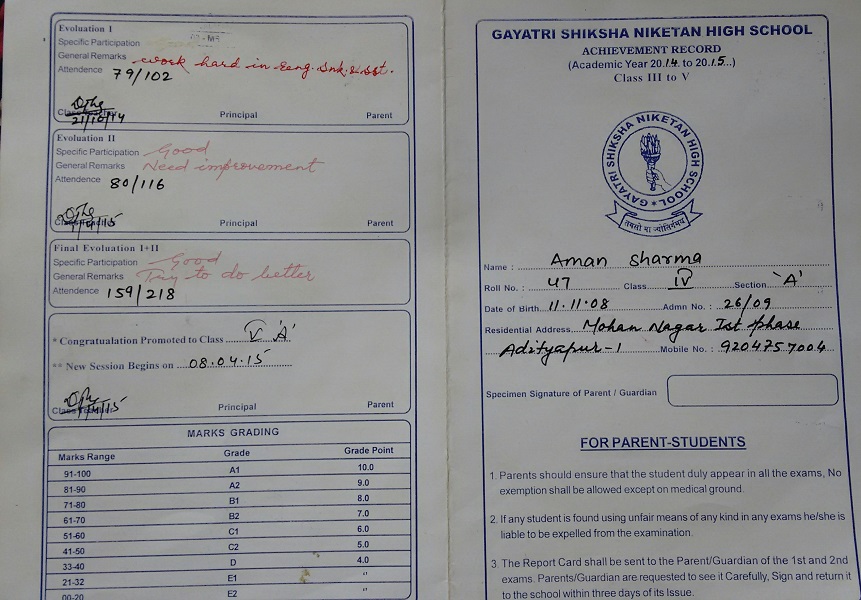 Evaluation I
Specific Participation
General Remarks work hard in Eeng. Snk. & Sst.
Attendence 79/102
21/10/14
Principal Parent
Evaluation II
Specific Participation Good
General Remarks Need improvement
Attendence 80/116
Principal Parent
Final Evaluation I+II
Specific Participation Good
General Remarks Try to do better
Attendence 159/218
* Congratualation Promoted to Class V 'A'
** New Session Begins on 08.04.15
Principal Parent
MARKS GRADING
Marks Range Grade Grade Point
91-100 A1 10.0
81-90 A2 9.0
71-80 B1 8.0
61-70 B2 7.0
51-60 C1 6.0
41-50 C2 5.0
33-40 D 4.0
21-32 E1 "
00-20 E2 "
GAYATRI SHIKSHA NIKETAN HIGH SCHOOL
ACHIEVEMENT RECORD
(Academic Year 2014 to 2015)
Class III to V
GAYATRI SHIKSHA NIKETAN HIGH SCHOOL
तमसो मा ज्योतिर्गमय
Name : Aman Sharma
Roll No. : 47 Class IV Section 'A'
Date of Birth 11.11.08 Admn No. : 26/09
Residential Address Mohan Nagar Ist phase
Adityapur-1 Mobile No. : 9204757004
Specimen Signature of Parent / Guardian
FOR PARENT-STUDENTS
1. Parents should ensure that the student duly appear in all the exams, No
exemption shall be allowed except on medical ground.
2. If any student is found using unfair means of any kind in any exams he/she is
liable to be expelled from the examination.
3. The Report Card shall be sent to the Parent/Guardian of the 1st and 2nd
exams. Parents/Guardian are requested to see it Carefully, Sign and return it
to the school within three days of its Issue.